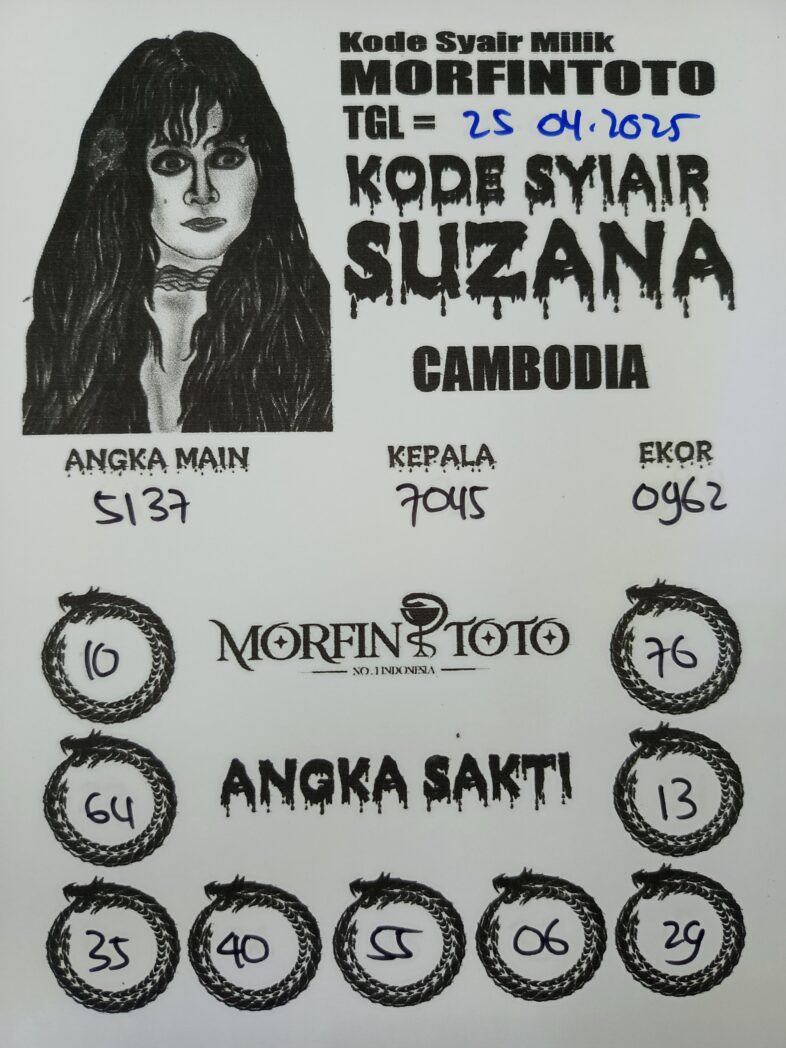 Kode Syair Milik
MORFINTOTO
TGL = 25 04.2025
KODE SYIAIR
SUZANA
CAMBODIA
ANGKA MAIN KEPALA EKOR
5137 7045 0962
10 MORFIN TOTO 76
NO.1 INDONESIA
64 ANGKA SAKTI 13
35 40 55 06 29